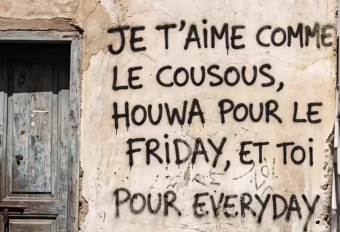 JE T'AiME COMME
LE COUSOUS,
HOUWA POUR LE
FRiDAY, ET TOi
POUR EVERYDAY